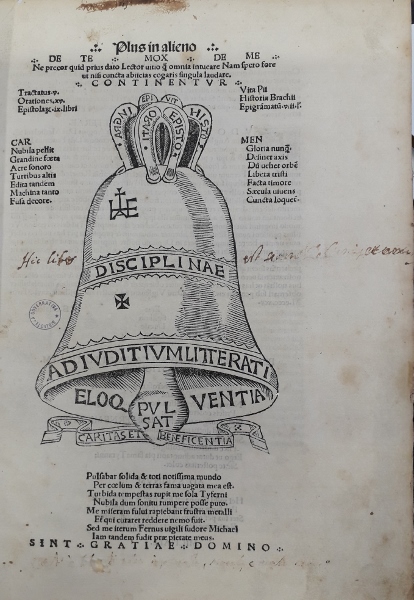 Plus in alieno
DE TE MOX DE ME
Ne precor quid prius dato Lector uitio q̃ omnia intueare Nam spero fore
ut nisi cuncta abiicias cogaris singula laudare.
CONTINENTVR
Tractatus.v.
Orationes.xv.
Epistolaꝝ.ix.libri
Vita Pii
Historia Brachii
Epigrãmatũ.viii.l.
CAR
Nubila pellit
Grandine fœta
Aere sonoro
Turribus altis
Edita tandem
Machina tanto
Fusa decore.
MEN
Gloria nunq̃
Desinet axis
Dũ uehet orbẽ
Libera tristi
Facta timore
Sæcula uiuens
Cuncta loquet
EPI
VIT
HISTO
ORATI
EPISTO
Hic liber
est
DISCIPLINAE
AD IVDITIVM LITTERATI
ELOQ
VENTIA
PVL
SAT
CARITAS ET BENEFICENTIA
Pulsabar solida & toti notissima mundo
Per cœlum & terras fama uagata mea est.
Turbida tempestas rupit me sola Tyferni
Nubila dum sonitu rumpere posse puto.
Me miseram fului rapiebant frustra metalli
Et qui curaret reddere nemo fuit.
Sed me iterum Fernus uigili sudore Michael
Iam tandem fudit præ pietate meus.
SINT GRATIAE DOMINO